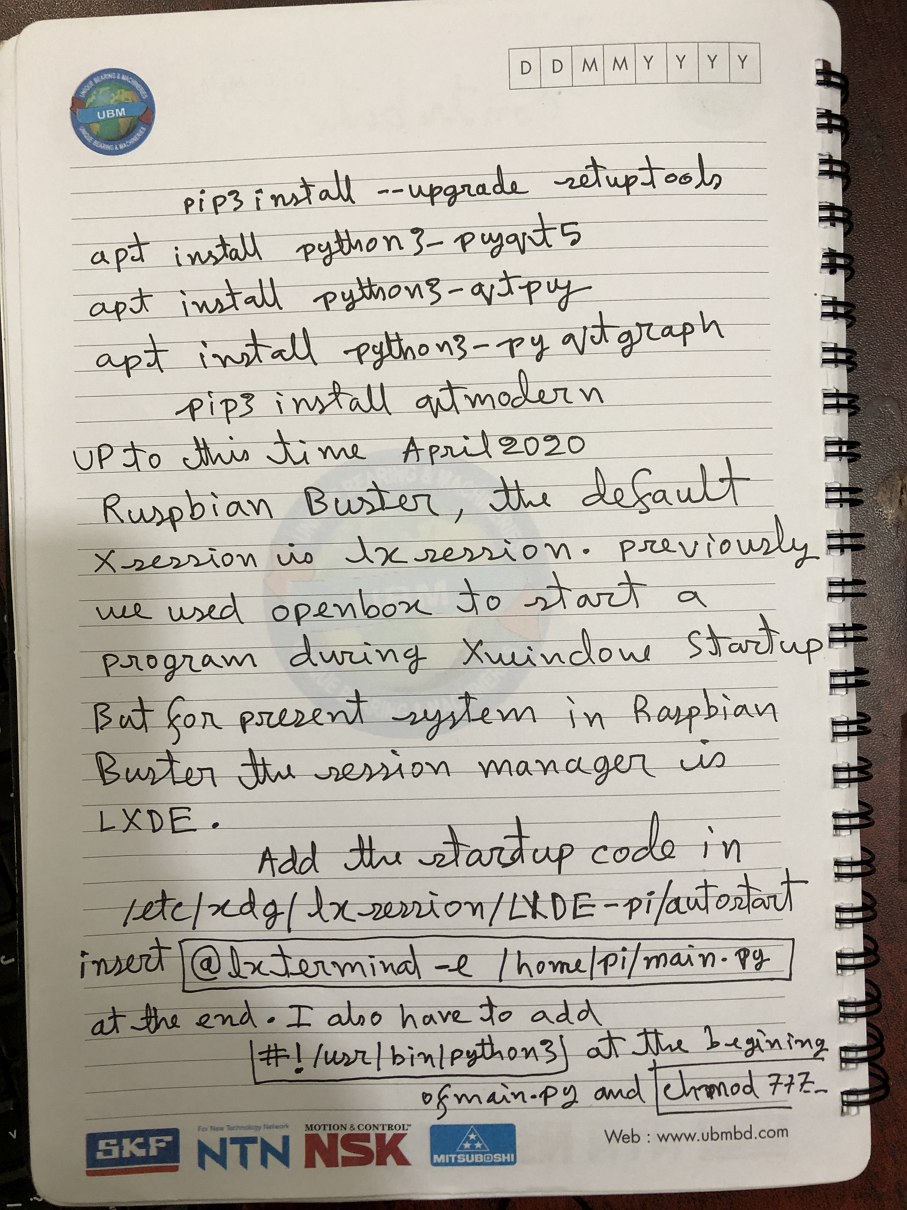 D D M M Y Y Y Y
UNIQUE BEARING & MACHINERIES
UBM
UNIQUE BEARING & MACHINERIES
pip3 install --upgrade setuptools
apt install python3-pyqt5
apt install python3-qtpy
apt install python3-pyqtgraph
pip3 install qtmodern
UP to this time April 2020
Ruspbian Buster, the default
Xsession is lxsession. previously
we used openbox to start a
program during Xwindow Startup
But for present system in Raspbian
Buster the session manager is
LXDE.
Add the startup code in
/etc/xdg/lxsession/LXDE-pi/autostart
insert @lxterminal -e /home/pi/main.py
at the end. I also have to add
#!/usr/bin/python3 at the begining
of main.py and chmod 777
SKF
For New Technology Network
NTN
MOTION & CONTROL™
NSK
MITSUBOSHI
Web : www.ubmbd.com